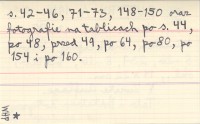 s. 42-46, 71-73, 148-150 oraz
fotografie na tablicach po s. 44,
po 48, przed 49, po 64, po 80, po
154 i po 160.